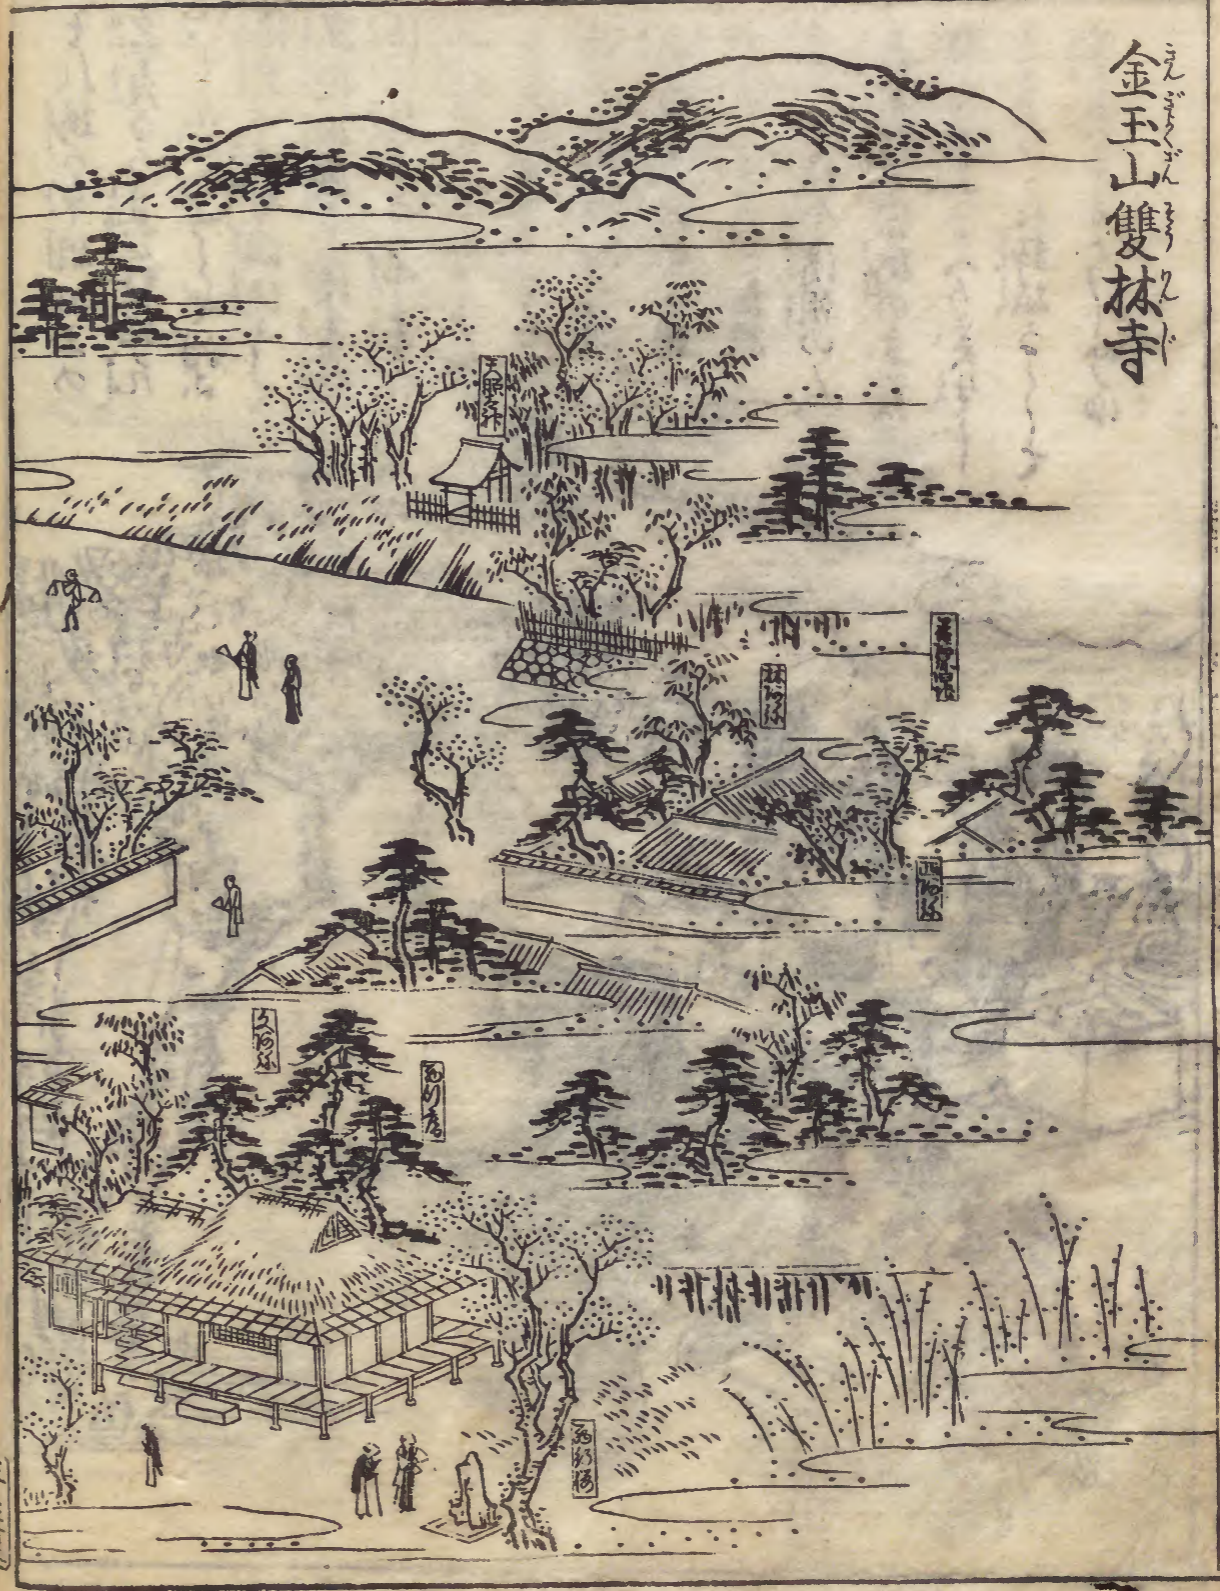 金玉山雙林寺
きんぎよくざんそうりんじ
天照太神
林阿弥
西阿弥
文阿弥
西行庵
西行桜